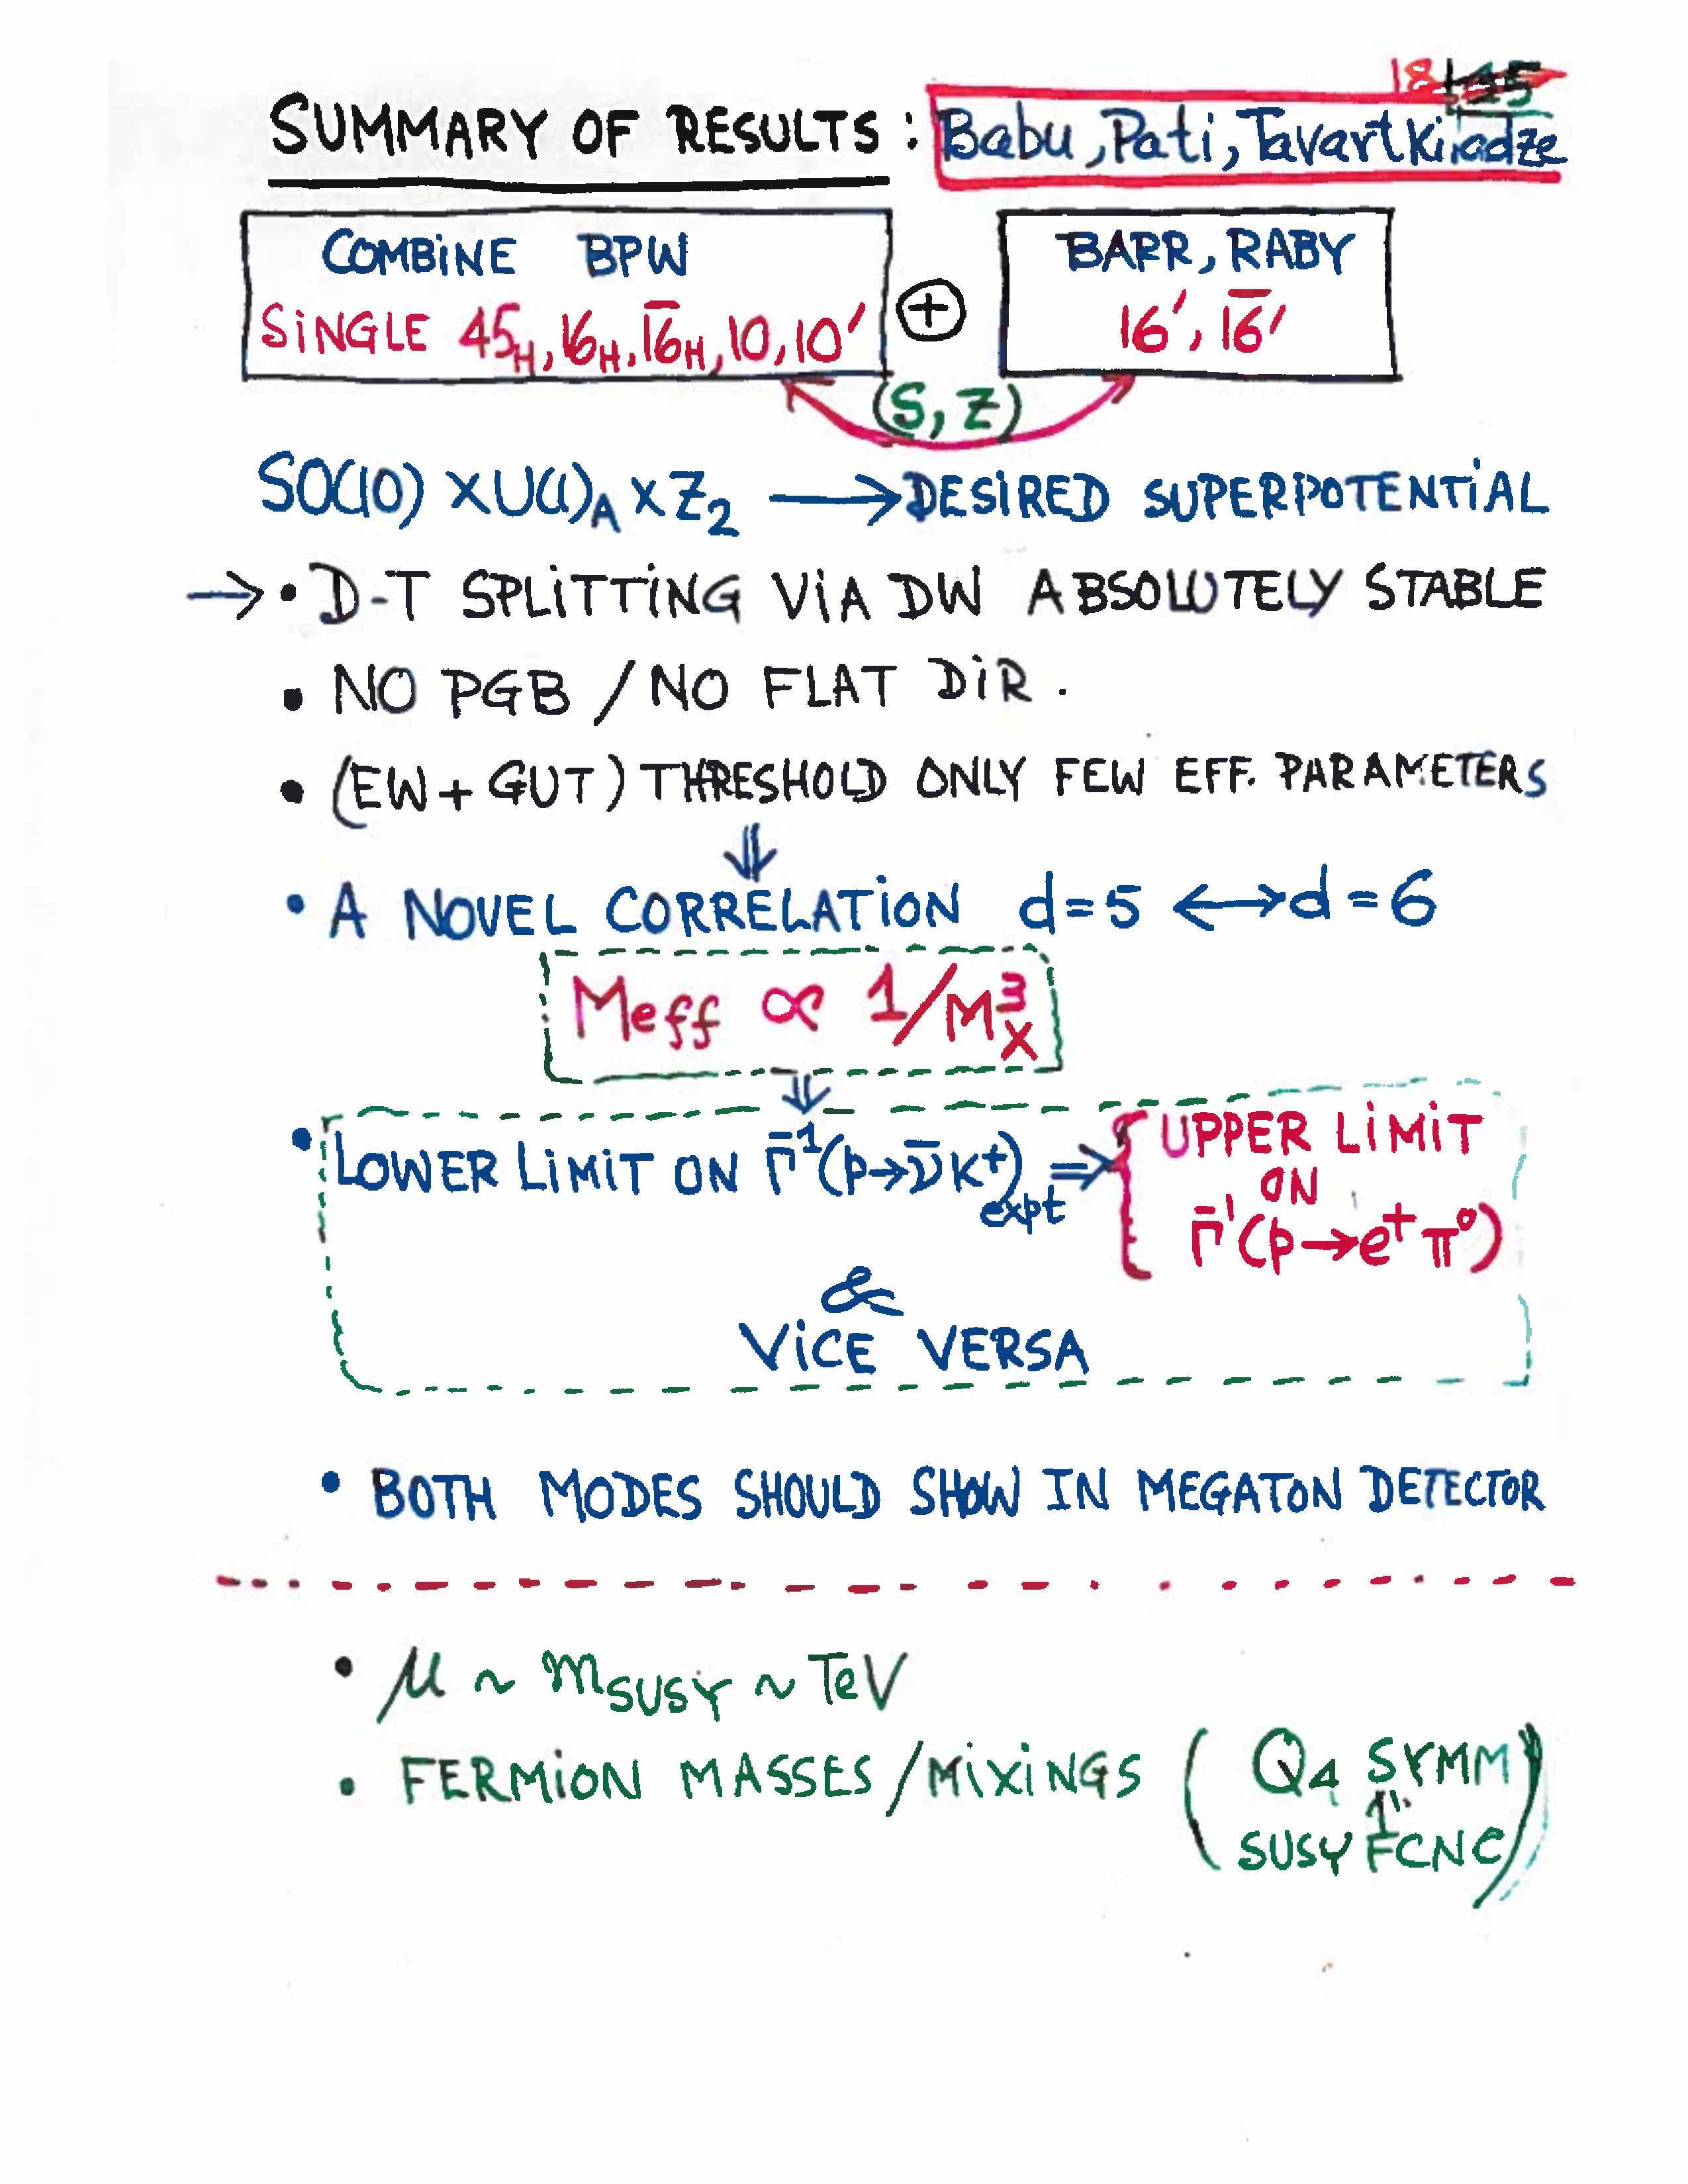 18
SUMMARY OF RESULTS : Babu, Pati, Tavartkiladze
COMBINE BPW
SINGLE 45_H, 16_H, \overline{16}_H, 10, 10′
⊕
BARR, RABY
16′, \overline{16}′
(S, Z)
SO(10) × U(1)_A × Z_2 ⟶ DESIRED SUPERPOTENTIAL
→ • D-T SPLITTING VIA DW ABSOLUTELY STABLE
• NO PGB / NO FLAT DIR.
• (EW + GUT) THRESHOLD ONLY FEW EFF. PARAMETERS
⇓
• A NOVEL CORRELATION d=5 ⟷ d=6
Meff ∝ 1/M_X^3
⇓
• LOWER LIMIT ON Γ^{-1}(p→ν̄K^+)_{expt} ⇒ { UPPER LIMIT
ON
Γ^{-1}(p→e^+π^0)
&
VICE VERSA
• BOTH MODES SHOULD SHOW IN MEGATON DETECTOR
• μ ~ m_{SUSY} ~ TeV
• FERMION MASSES/MIXINGS ( Q_4 SYMM
SUSY FCNC )